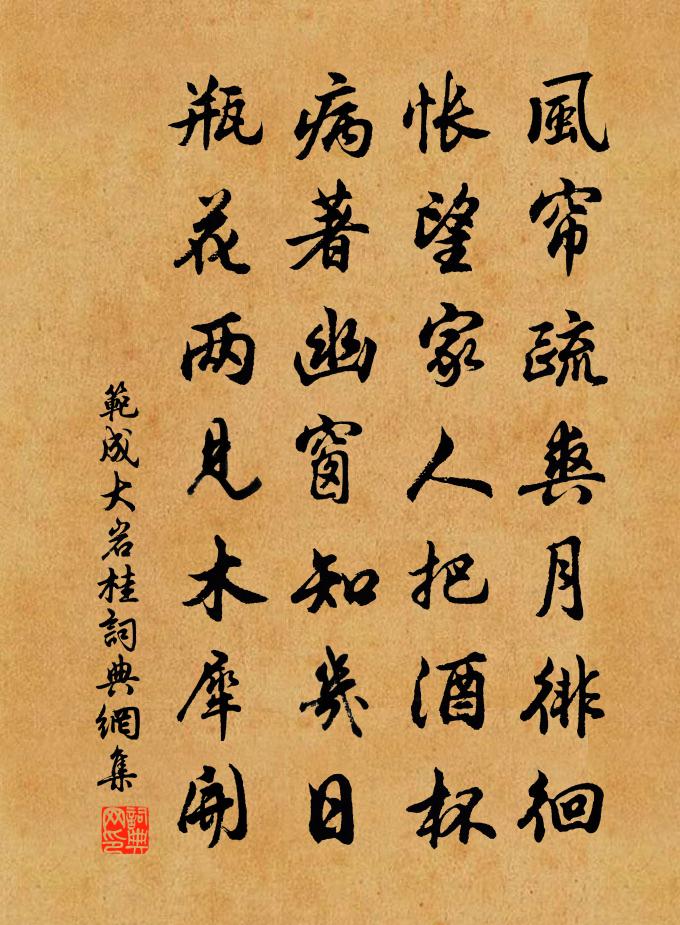 風帘疏爽月徘徊
悵望家人把酒杯
病著幽窗知幾日
瓶花两見木犀開
範成大岩桂詞典網集
詞典网印